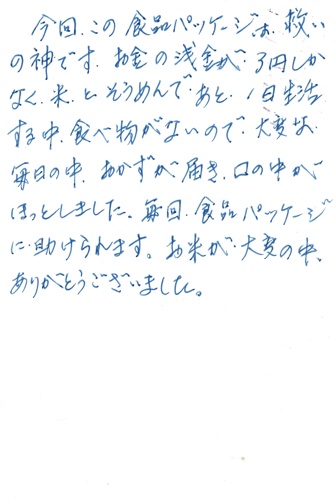 今回、この食品パッケージは、救い
の神です。お金の残金が、3円しか
なく、米、と、そうめんで、あと、1日生活
する中、食べ物がないので、大変な
毎日の中、おかずが届き、口の中が
ほっとしました。毎回、食品パッケージ
に、助けられます。お米が、大変の中、
ありがとうございました。